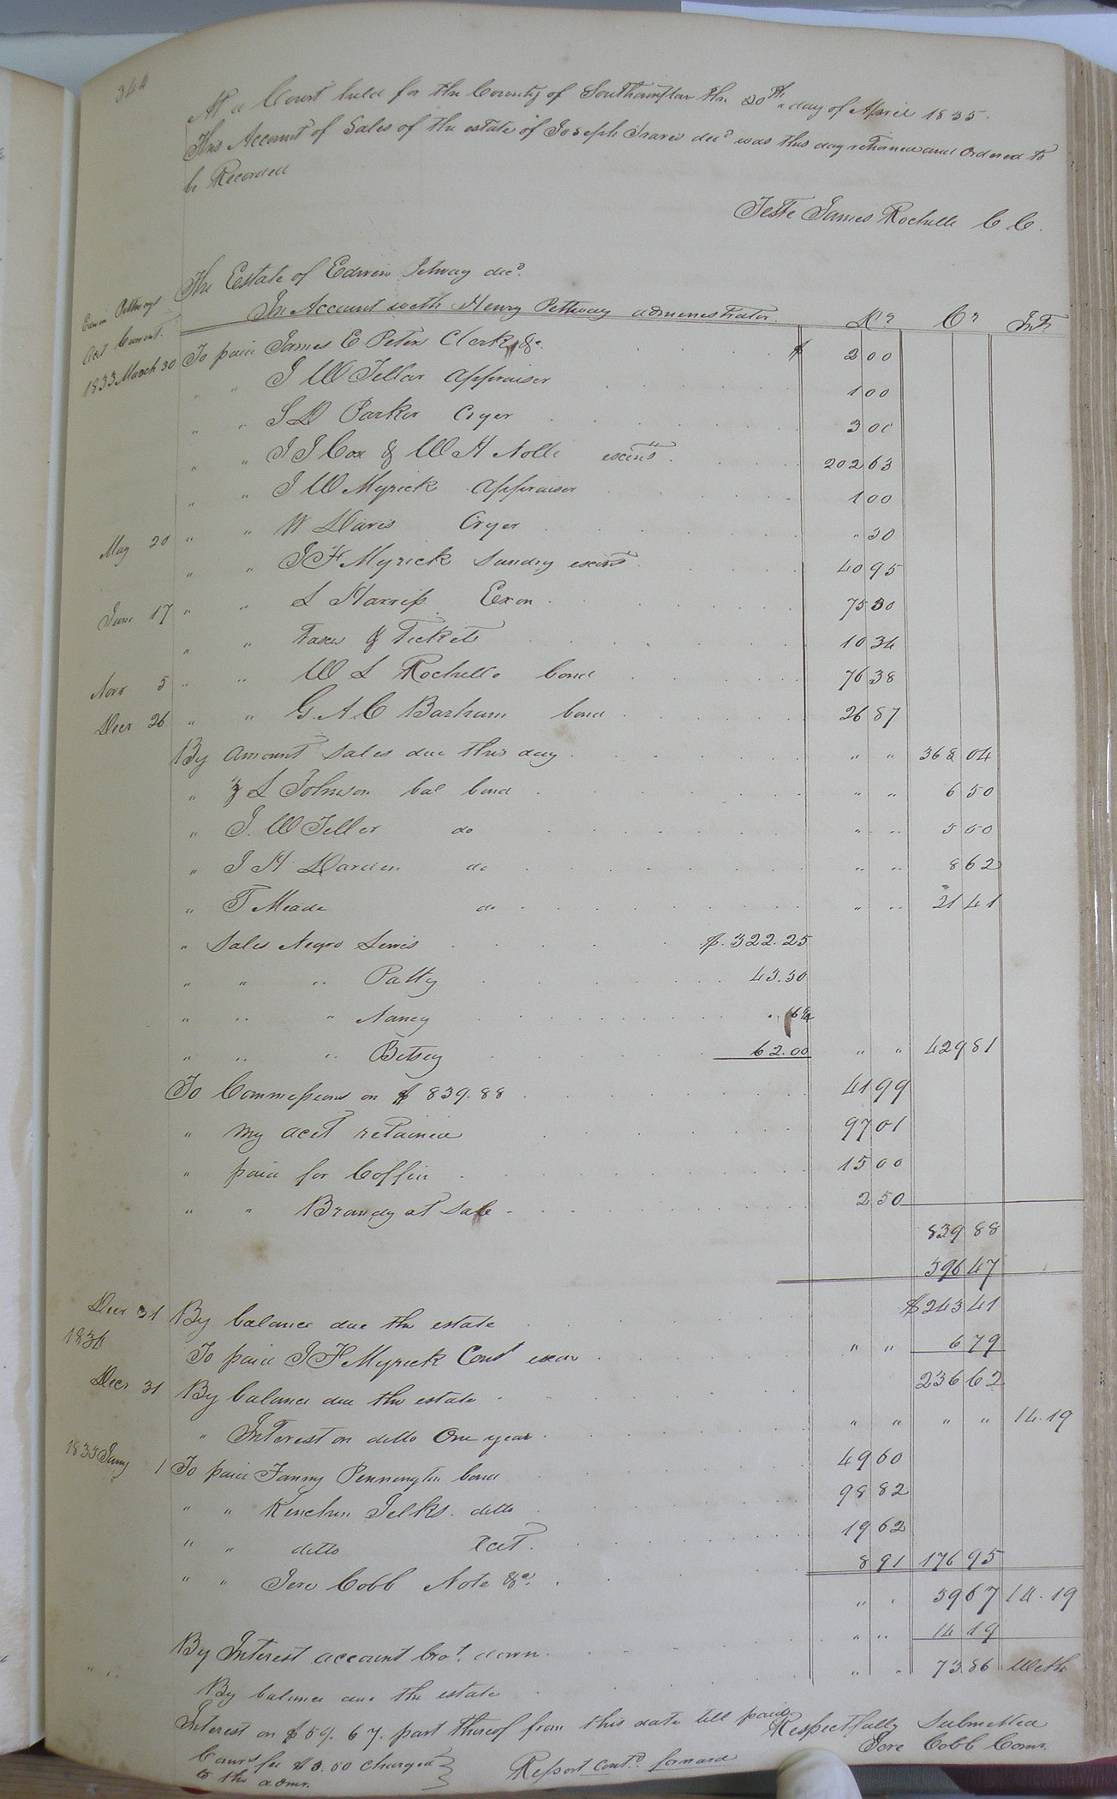 344
At a Court held for the County of Southampton the 20th day of April 1835.
This Account of Sales of the estate of Joseph Travis decd was this day returned and Ordered to
be Recorded
Teste James Rochelle C.C.
The Estate of Edwin Petway decd.
In Account with Henry Pettway administrator. Dr Cr Int.
Edwin Pettways
Act Current.
1833 March 30 To paid James E Peters Clerk &c. $ 2 00
" " J W Tellar appraiser 1 00
" " Parker Cryer 3 00
" " J J Cox & W H Nolle 202 63
" " J W Myrick appraiser 1 00
" " W Davis Cryer " 30
May 20 " " J F Myrick Sundry 40 95
" " L Harriss Exon. 75 30
June 17 " " Taxes & Tickets 10 34
" " W L Rochelle bond 76 38
Novr 5 " " G A C Barham bond 26 87
Decr 26 By amount sales due this day " " 368 04
" L Johnson bal bond " " 6 50
" J. W Teller do " " 5 00
" J H Darden do " " 8 62
" T Meade do " " 21 41
" Sales Negro Lewis $.322.25
" " " Patty 43.50
" " " Nancy . 6¼
" " " Betsey 62.00 " " 429 81
To Commissions on $ 839.88 41 99
" my acct retained 97 01
" paid for Coffin 15 00
" " Brandy at sale 2 50
839 88
596 47
Decr 31 By balance due the estate $243 41
1834 To paid J F Myrick Const " " 6 79
Decr 31 By balance due the estate 236 62
" Interest on ditto One year " " " " 14.19
1835 Jany 1 To paid Fanny Pennington bond 49 60
" " Kinchen Jelks ditto 98 82
" " ditto acct. 19 62
" " Jere Cobb Note &c. 8 91 176 95
" " 59 67 14.19
By Interest account brot. down " " 14 19
By balance due the estate " " 73.86 With
Interest on $59.67. part thereof from this date till paid
Respectfully Submitted
Jere Cobb Comr.
Comrs fee $3.00 charged
to the admr.
Report contd. forward